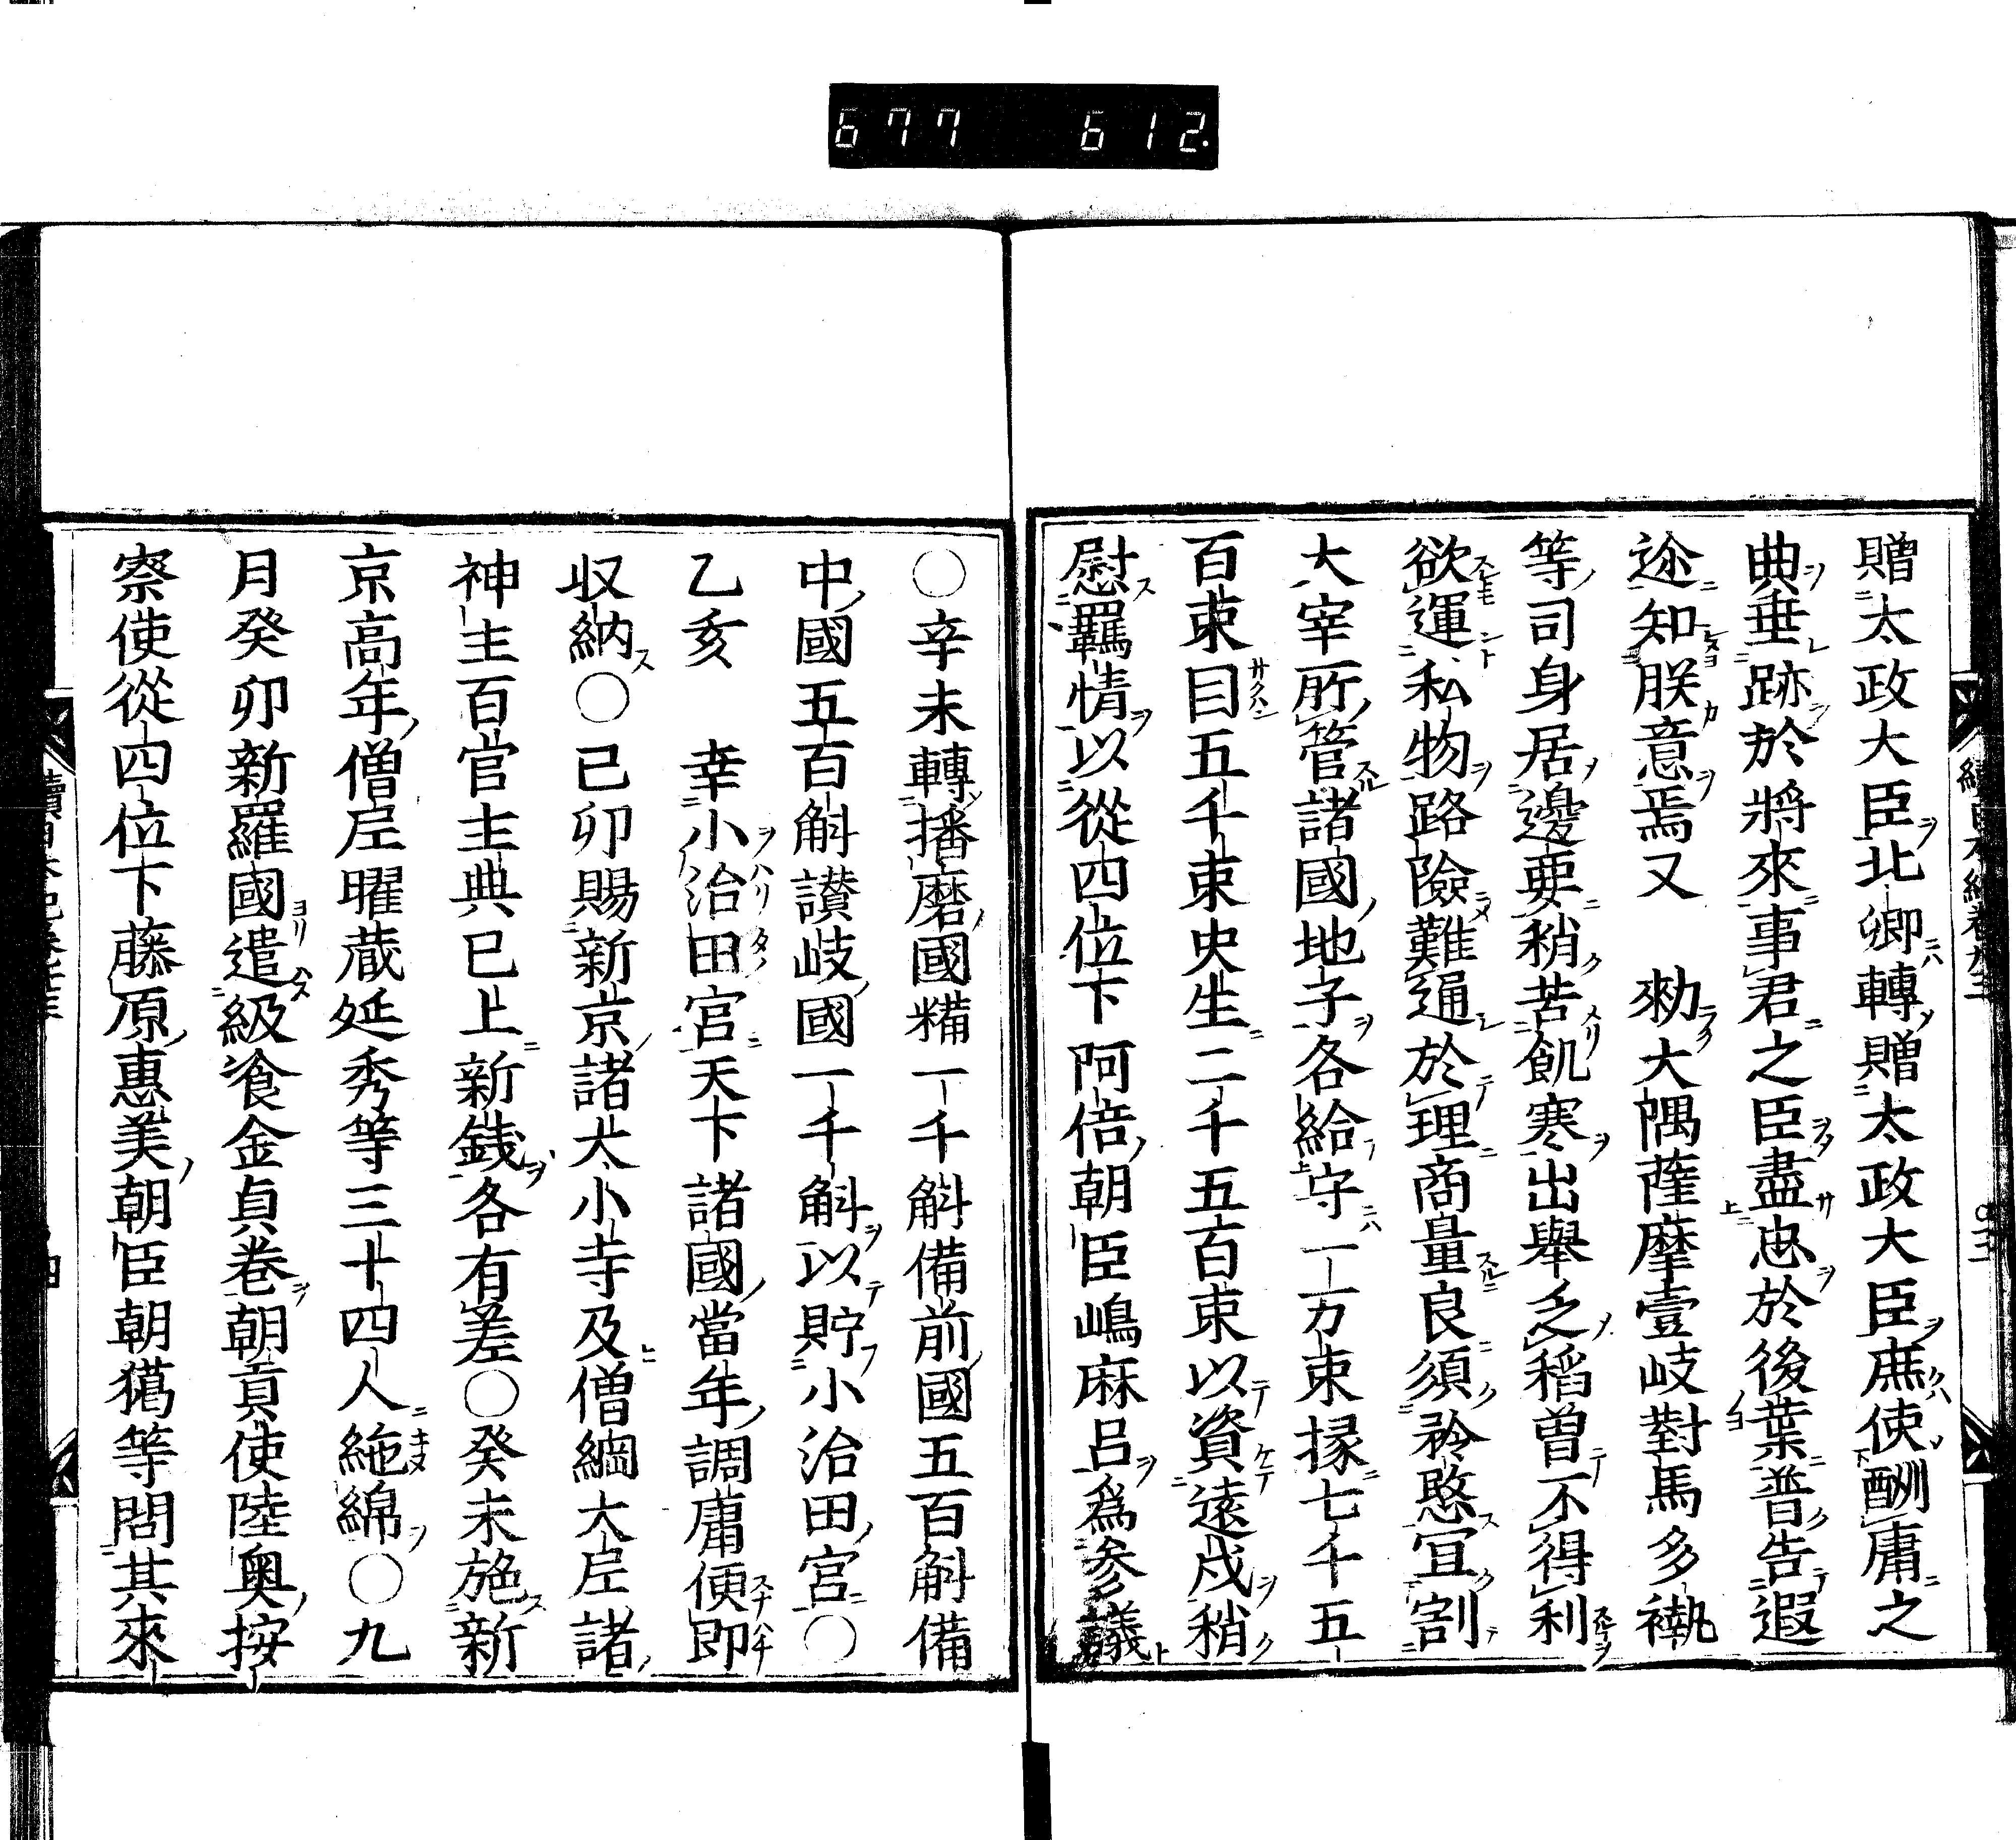 677 612.
贈太政大臣北卿轉贈太政大臣庶使酬庸之
典垂跡於將來事君之臣盡忠於後葉普告遐
迩知朕意焉又 勑大隅薩摩壹岐對馬多褹
等司身居邊要稍苦飢寒出舉乏稻曽不得利
欲運私物路險難通於理商量良須矜愍宜割
大宰所管諸國地子各給守一万束掾七千五
百束目五千束史生二千五百束以資遠戍稍
慰羈情以從四位下阿倍朝臣嶋麻呂爲参議
○辛未轉播磨國糒一千斛備前國五百斛備
中國五百斛讃岐國一千斛以貯小治田宮○
乙亥 幸小治田宮天下諸國當年調庸便即
収納○己卯賜新京諸大小寺及僧綱大尼諸
神主百官主典已上新銭各有差○癸未施新
京高年僧尼曜蔵延秀等三十四人絁綿○九
月癸卯新羅國遣級飡金貞巻朝貢使陸奥按
察使從四位下藤原惠美朝臣朝獦等問其來